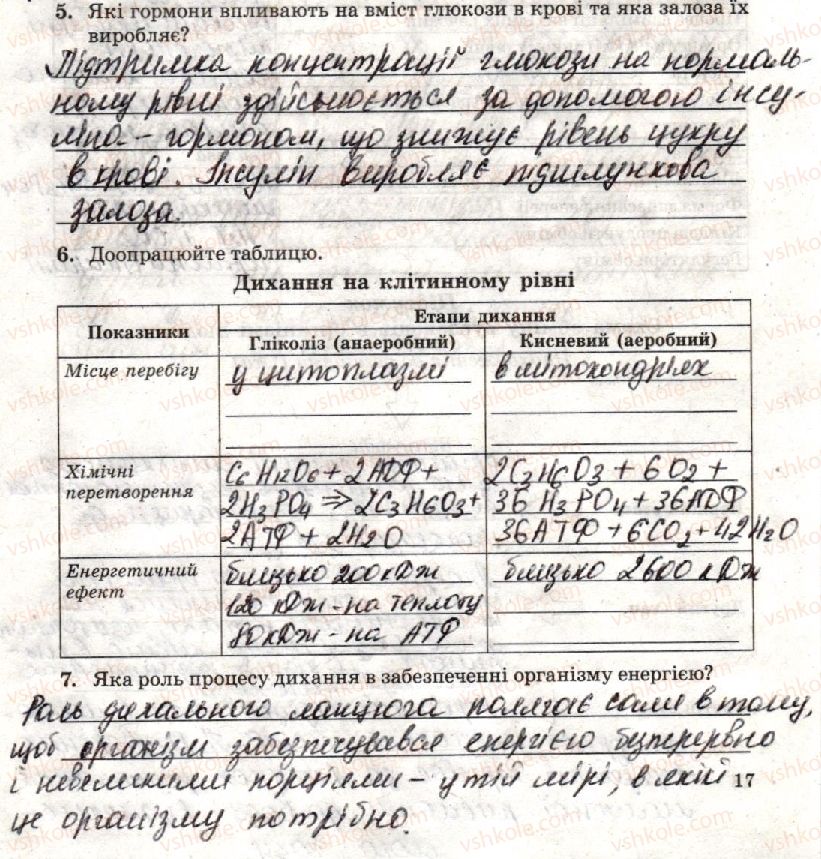 5. Які гормони впливають на вміст глюкози в крові та яка залоза їх
виробляє?
Підтримка концентрації глюкози на нормаль-
ному рівні здійснюється за допомогою інсу-
ліна - гормоном, що знижує рівень цукру
в крові. Інсулін виробляє підшлункова
залоза.
6. Доопрацюйте таблицю.
Дихання на клітинному рівні
Показники
Етапи дихання
Гліколіз (анаеробний)
Кисневий (аеробний)
Місце перебігу
у цитоплазмі
в мітохондріях
Хімічні
перетворення
C6H12O6 + 2АДФ +
2H3PO4 => 2C3H6O3 +
2АТФ + 2H2O
2C3H6O3 + 6O2 +
36H3PO4 + 36АДФ
36АТФ + 6CO2 + 42H2O
Енергетичний
ефект
близько 200 кДж
120 кДж - на теплоту
80 кДж - на АТФ
близько 2600 кДж
7. Яка роль процесу дихання в забезпеченні організму енергією?
Роль дихального ланцюга полягає саме в тому,
щоб організм забезпечувався енергією безперервно
і невеликими порціями - у тій мірі, в якій
17
це організму потрібно.